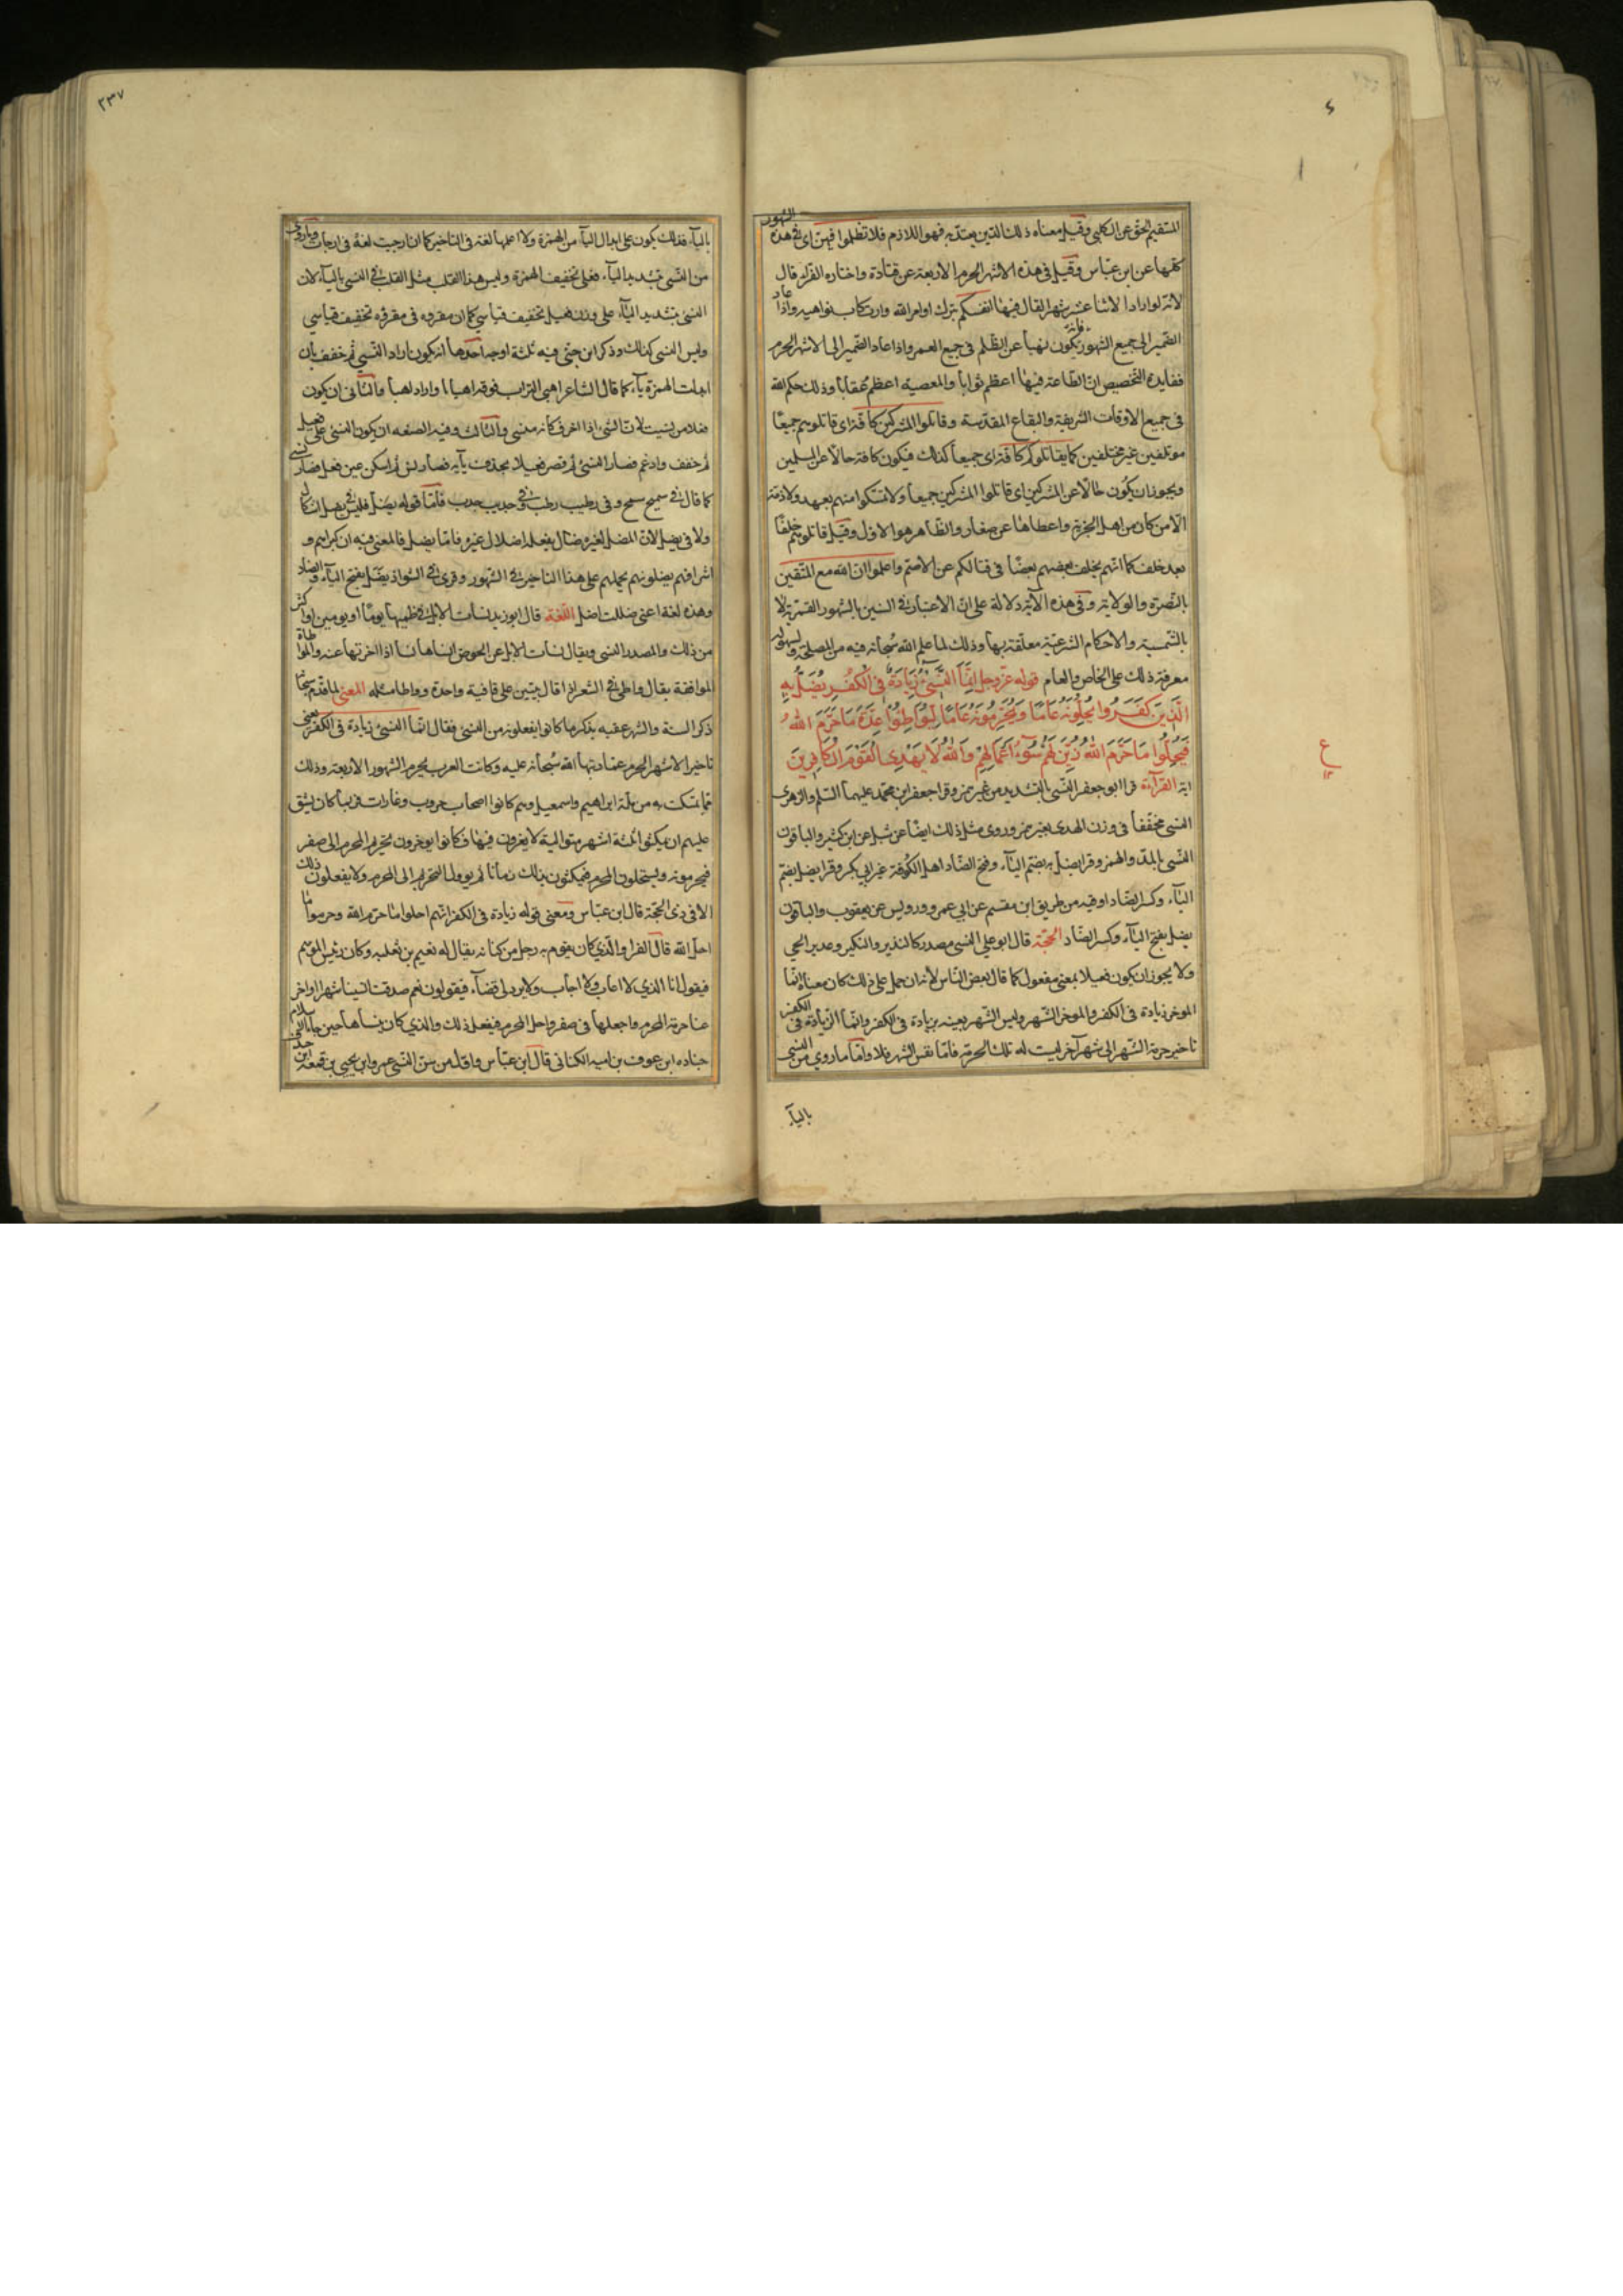 المستقيم الحق عن الكلبي وقيل معناه ذلك الدين يعتد به فهو اللازم فلا تظلموا فيهن اى في هذه الشهور
كلها عن ابن عباس وقيل في هذه الاشهر الحرم الاربعة عن قتادة واختاره الفراء قال
لانه لو اراد الاثنا عشر شهرا لقال فيها انفسكم بترك اوامر الله وارتكاب نواهيه واذا عاد
الضمير الى جميع الشهور فانه يكون نهيا عن الظلم في جميع العمر واذا عاد الضمير الى الاشهر الحرم
ففايدة التخصيص ان الطاعة فيها اعظم ثوابا والمعصية اعظم عقابا وذلك حكم الله
في جميع الاوقات الشريفة والبقاع المقدسة وقاتلوا المشركين كافة اى قاتلوهم جميعا
موتلفين غير مختلفين كما يقاتلونكم كافة اى جميعا كذلك فيكون كافة حالا عن المسلمين
ويجوز ان يكون حالا عن المشركين اى قاتلوا المشركين جميعا ولا تمسكوا منهم بعهد ولا ذمة
الا من كان من اهل الجزية واعطاها عن صغار والظاهر هو الاول وقيل قاتلوهم خلفا
بعد خلف كما انهم يخلف بعضهم بعضا في قتالكم عن الاصم واعلموا ان الله مع المتقين
بالنصرة والولاية وفي هذه الآية دلالة على ان الاعتبار في السنين بالشهور القمرية لا
بالشمسية والاحكام الشرعية معلقة بها وذلك لما علم الله سبحانه فيه من المصلحة ولسهولة
معرفة ذلك على الخاص والعام قوله عز وجل اِنَّمَا النَّسِيءُ زِيَادَةٌ فِي الْكُفْرِ يُضَلُّ بِهِ
الَّذِينَ كَفَرُوا يُحِلُّونَهُ عَامًا وَيُحَرِّمُونَهُ عَامًا لِيُوَاطِئُوا عِدَّةَ مَا حَرَّمَ اللهُ
فَيُحِلُّوا مَا حَرَّمَ اللهُ زُيِّنَ لَهُمْ سُوءُ اَعْمَالِهِمْ وَاللهُ لَا يَهْدِى الْقَوْمَ الْكَافِرِينَ
اية القرآءة قرا ابو جعفر النسى بالتشديد من غير همز وقرا جعفر ابن محمد عليهما السلم والزهرى
النسى مخففا في وزن الهدى بغير همز وروى مثل ذلك ايضا عن شبل عن ابن كثير والباقون
النسى بالمد والهمز وقرا يضل به بضم اليآء وفتح الضاد اهل الكوفة غير ابي بكر وقرا يضل بضم
اليآء وكسر الضاد اوقيه من طريق ابن مقسم عن ابي عمرو ورويس عن يعقوب والباقون
يضل بفتح اليآء وكسر الضاد الحجة قال ابو علي النسى مصدر كالنذير والنكير وعدير الحي
ولا يجوز ان يكون فعيلا بمعنى مفعول كما قال بعض الناس لانه ان حمل على ذلك كان معناه انما
الموخر زيادة في الكفر والموخر الشهر وليس الشهر بعينه بزيادة في الكفر وانما الزيادة في الكفر
تاخير حرمة الشهر الى شهر آخر ليست له تلك الحرمة فاما نفس الشهر فلا واما ما روي من النسى
باليآء
٢٣٧
باليآء فذلك يكون على ابدال اليآء من الهمزة ولا اعلمها لغة في التاخير كما ان ارجيت لغة في ارجات وما روي
من النسى بتشديد اليآء فعلى تخفيف الهمزة وليس هذا القلب مثل القلب في النسى باليآء لان
النسى بتشديد اليآء على وزن فعيل تخفيف قياسي كما ان مقروه في مقروه تخفيف قياسي
وليس النسى كذلك وذكر ابن جني فيه ثلثة اوجه احدها ان يكون اراد النسى ثم خفف بان
ابدلت الهمزة يآء كما قال الشاعر اهبى التراب فوقه اهبايا واراد اهبا والثانى ان يكون
فعلا من نسيت لان الشى اذا اخر فكانه منسى والثالث وفيه الصنعه ان يكون النسى على فعيل
ثم خفف وادغم فصار النسى ثم قصر فعيلا بحذف يآيه فصار نس ثم اسكن عين فعل فصار نسى
كما قال في سميح سمح وفى رطيب رطب في جديب جدب فاما قوله يضل فليس في يضل اشكال
ولا في يضل لان المضل لغيره ضال بفعله اضلال غيره فاما يضل فالمعنى فيه ان كبراءهم و
اشرافهم يضلونهم بحملهم على هذا التاخير في الشهور وقرى في الشواذ يضل بفتح اليآء والضاد
وهذه لغة اعنى ضللت اضل اللغة قال ابو زيد نسات الابل في ظميها يوما او يومين او اكثر
من ذلك والمصدر النسى ويقال نسات الابل عن الحوض انساها نسا اذا اخرتها عنه والمواطاة
الموافقة يقال واطى في الشعر اذا قال بيتين على قافية واحدة وواطا مثله المعنى لما قدم سبحانه
ذكر السنة والشهر عقبه بذكر ما كانوا يفعلونه من النسى فقال انما النسى زيادة في الكفر يعنى
تاخير الاشهر الحرم عما رتبها الله سبحانه عليه وكانت العرب تحرم الشهور الاربعة وذلك
مما تمسكت به من ملة ابراهيم واسمعيل وهم كانوا اصحاب حروب وغارات فربما كان يشق
عليهم ان يمكثوا ثلثة اشهر متوالية لا يغزون فيها فكانوا يوخرون تحريم المحرم الى صفر
فيحرمونه ويستحلون المحرم فيمكثون بذلك زمانا ثم يوول التحريم الى المحرم ولا يفعلون ذلك
الا في ذى الحجة قال ابن عباس ومعنى قوله زيادة في الكفر انهم احلوا ما حرم الله وحرموا ما
احل الله قال الفرا والذي كان يقوم به رجل من كنانه يقال له نعيم بن ثعلبه وكان رئيس الموسم
فيقول انا الذي لا اعاب ولا اجاب ولا يرد لى قضآء فيقولون نعم صدقت انسينا شهرا او اخر
عنا حرمة المحرم واجعلها في صفر واحل المحرم فيفعل ذلك والذي كان ينساها حين جاء الاسلام
جناده ابن عوف بن اميه الكنانى قال ابن عباس واول من سن النسى عمرو ابن يحيى بن قمعة ابن